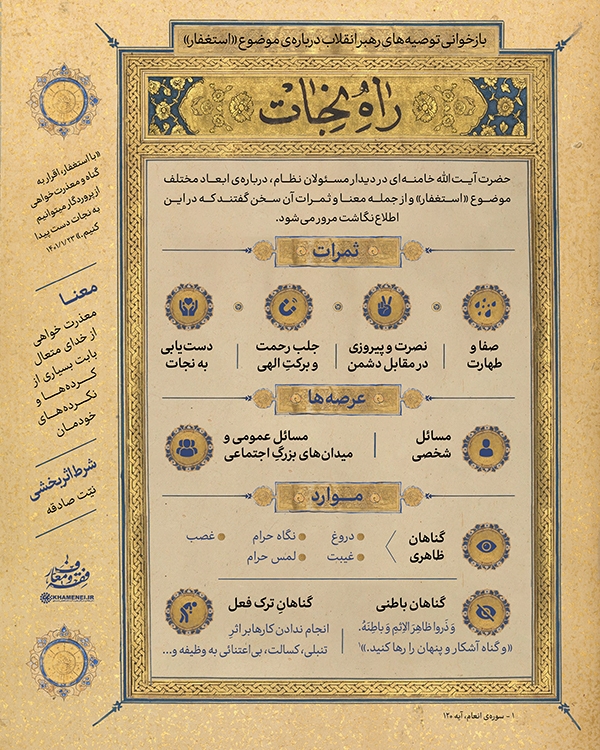 بازخوانی توصیه‌های رهبر انقلاب درباره‌ی موضوع «استغفار»
راهِ نجات
حضرت آیت‌الله خامنه‌ای در دیدار مسئولان نظام، درباره‌ی ابعاد مختلف
موضوع «استغفار» و از جمله معنا و ثمرات آن سخن گفتند که در این
اطلاع‌نگاشت مرور می‌شود.
ثمرات
صفا و
طهارت
نصرت و پیروزی
در مقابل دشمن
جلب رحمت
و برکتِ الهی
دست‌یابی
به نجات
عرصه‌ها
مسائل
شخصی
مسائل عمومی و
میدان‌های بزرگِ اجتماعی
مــوارد
گناهان
ظاهری
دروغ
نگاه حرام
غصب
غیبت
لمس حرام
گناهان باطنی
وَ ذَروا ظاهِرَ الاِثمِ وَ باطِنَهُ.
«و گناه آشکار و پنهان را رها کنید.»۱
گناهانِ ترک فعل
انجام ندادن کارها بر اثر
تنبلی، کسالت، بی‌اعتنائی به وظیفه و...
«با استغفار، اقرار به
گناه و معذرت‌خواهی
از پروردگار میتوانیم
به نجات دست پیدا
کنیم.» ۱۴۰۱/۱/۲۳
معنـا
معذرت خواهی
از خدای متعال
بابت بسیاری از
کرده‌ها و
نکرده‌های
خودمان
شرط اثربخشی
نیّت صادقه
فقه و معارف
KHAMENEI.IR
۱ - سوره‌ی انعام، آیه ۱۲۰